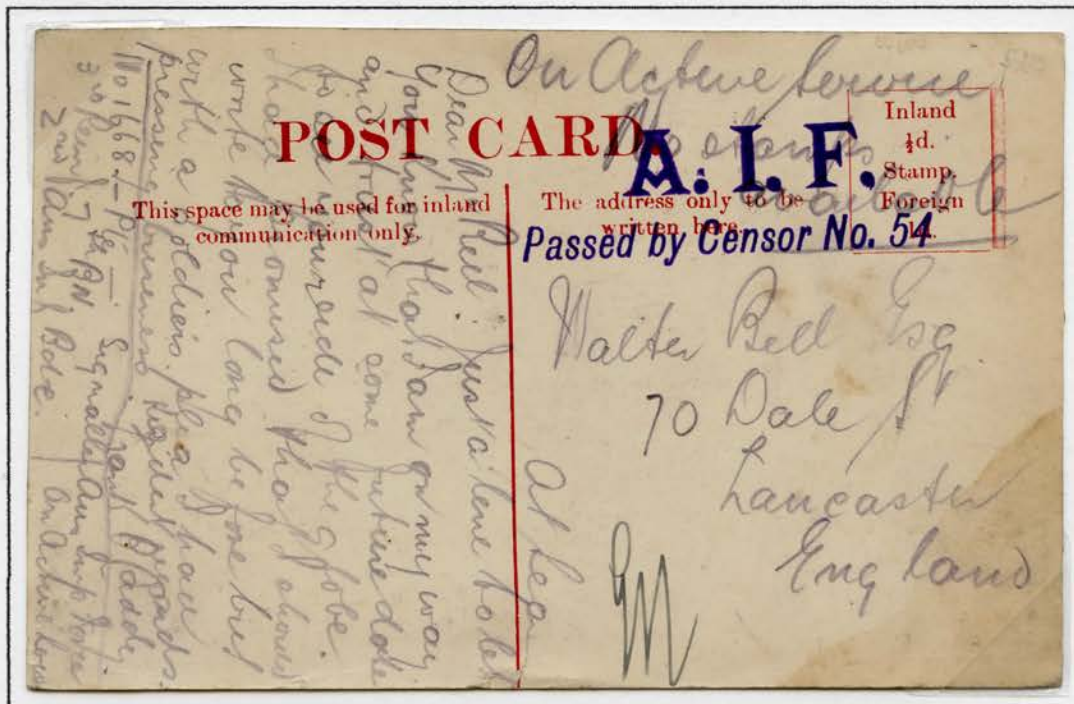 On Active Service
No stamps
available
POST CARD.
A. I. F.
Inland
½d.
Stamp.
Foreign
1d.
This space may be used for inland
communication only.
The address only to be
written here.
Passed by Censor No. 54
Walter Bell Esq
70 Dale St
Lancaster
England
At Sea
Dear Mr Bell Just a line to let
you know that I am on my way
and hope at some future date
to be your side of the globe.
I had promised that I should
write you long before but
with a soldiers plea I have
pressing business
No 1668 - Pte Signaller Aus Imp Force
7th BN.
2nd Inf. Bde. On Active Service